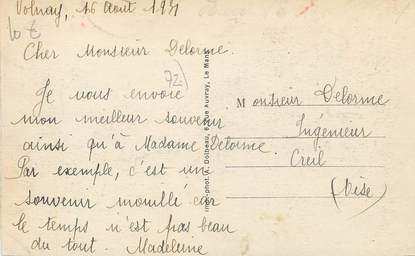 Volnay, 16 Août 1931
Cher Monsieur Delorme.
72
Je vous envoie
mon meilleur souvenir
ainsi qu'à Madame Delorme.
Par exemple, c'est un
souvenir mouillé car
le temps n'est pas beau
du tout. Madeleine
Imp.-phot. A. Dolbeau, rue auvray, Le Mans
Monsieur Delorme
Ingénieur
Creil
(Oise)